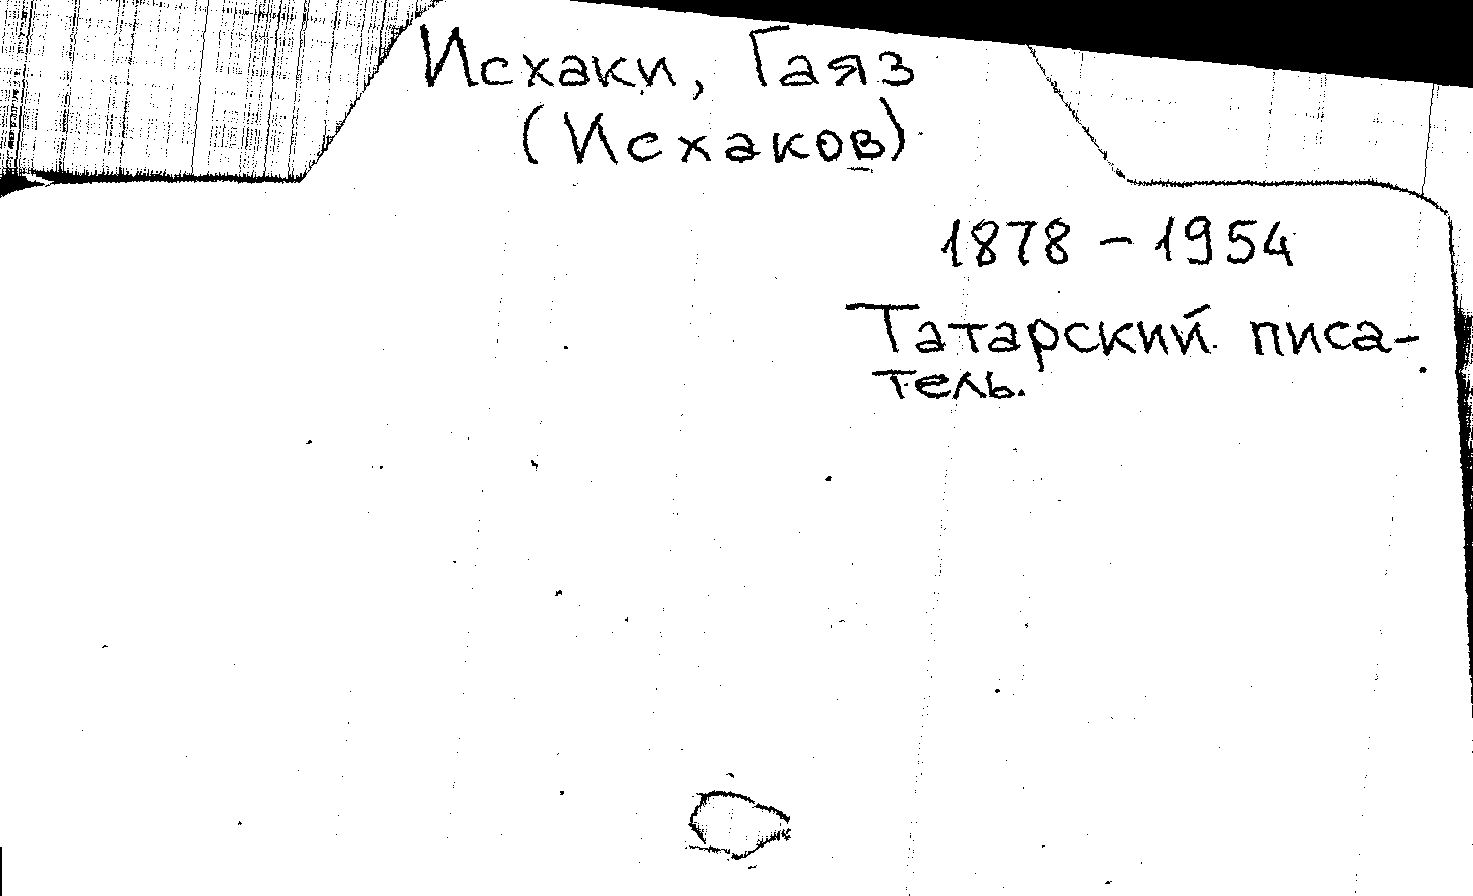 Исхаки, Гаяз
(Исхаков)
1878 - 1954
Татарский писа-
тель.